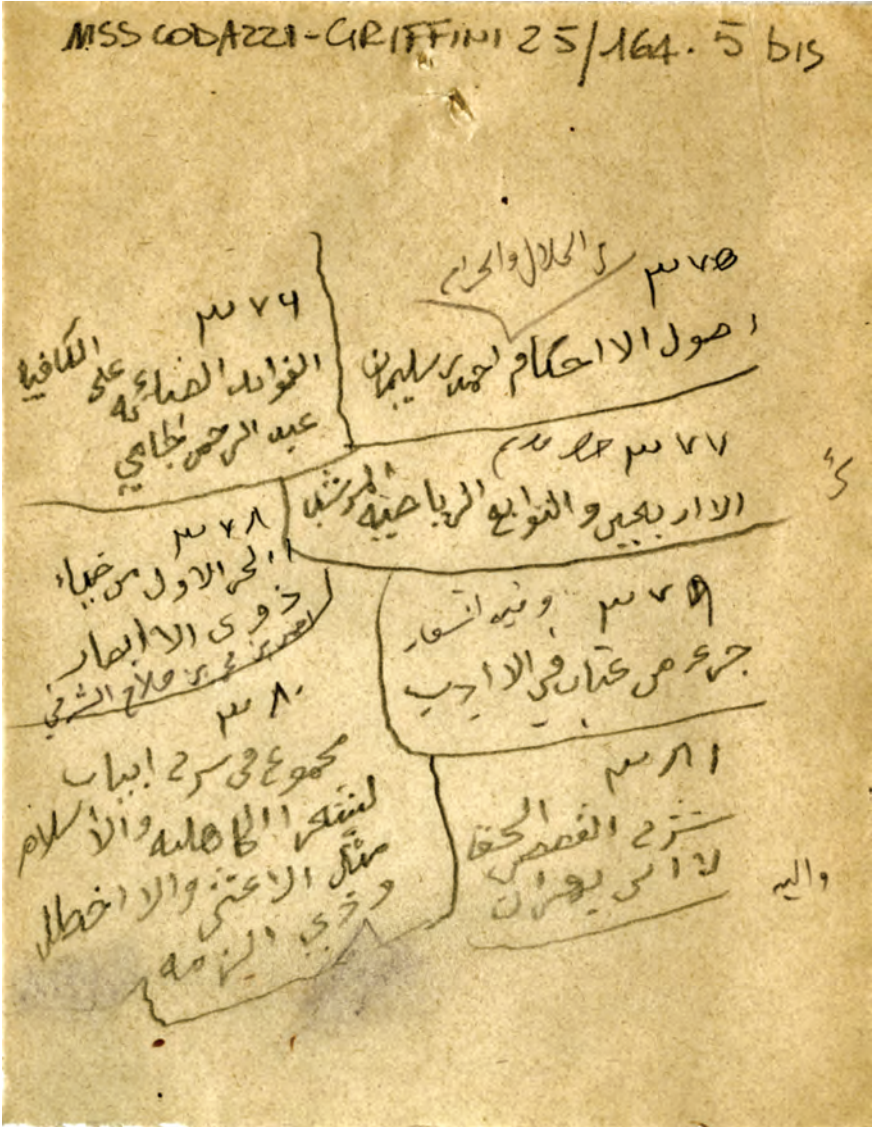 MSS CODAZZI-GRIFFINI 25/164. 5 bis
٣٧٥
الحلال والحرام
اصول الاحكام احمد بن سليمان
٣٧٦
الفوائد الضيائيه على الكافيه
عبد الرحمن الجامي
٣٧٧ خط قديم
والتوابع
٣٧٨
الجز الاول من ضياء
ذوى الابصار
احمد بن محمد بن صلاح الشرفي
٣٧٩ وفيه اشعار
جزء من كتاب في الادب
٣٨٠
مجموع في شرح ابيات
لشعرا الجاهليه والاسلام
مثل الاعشى والاخطل
وذي الرمه
٣٨١
شرح القصص الحق
واليه